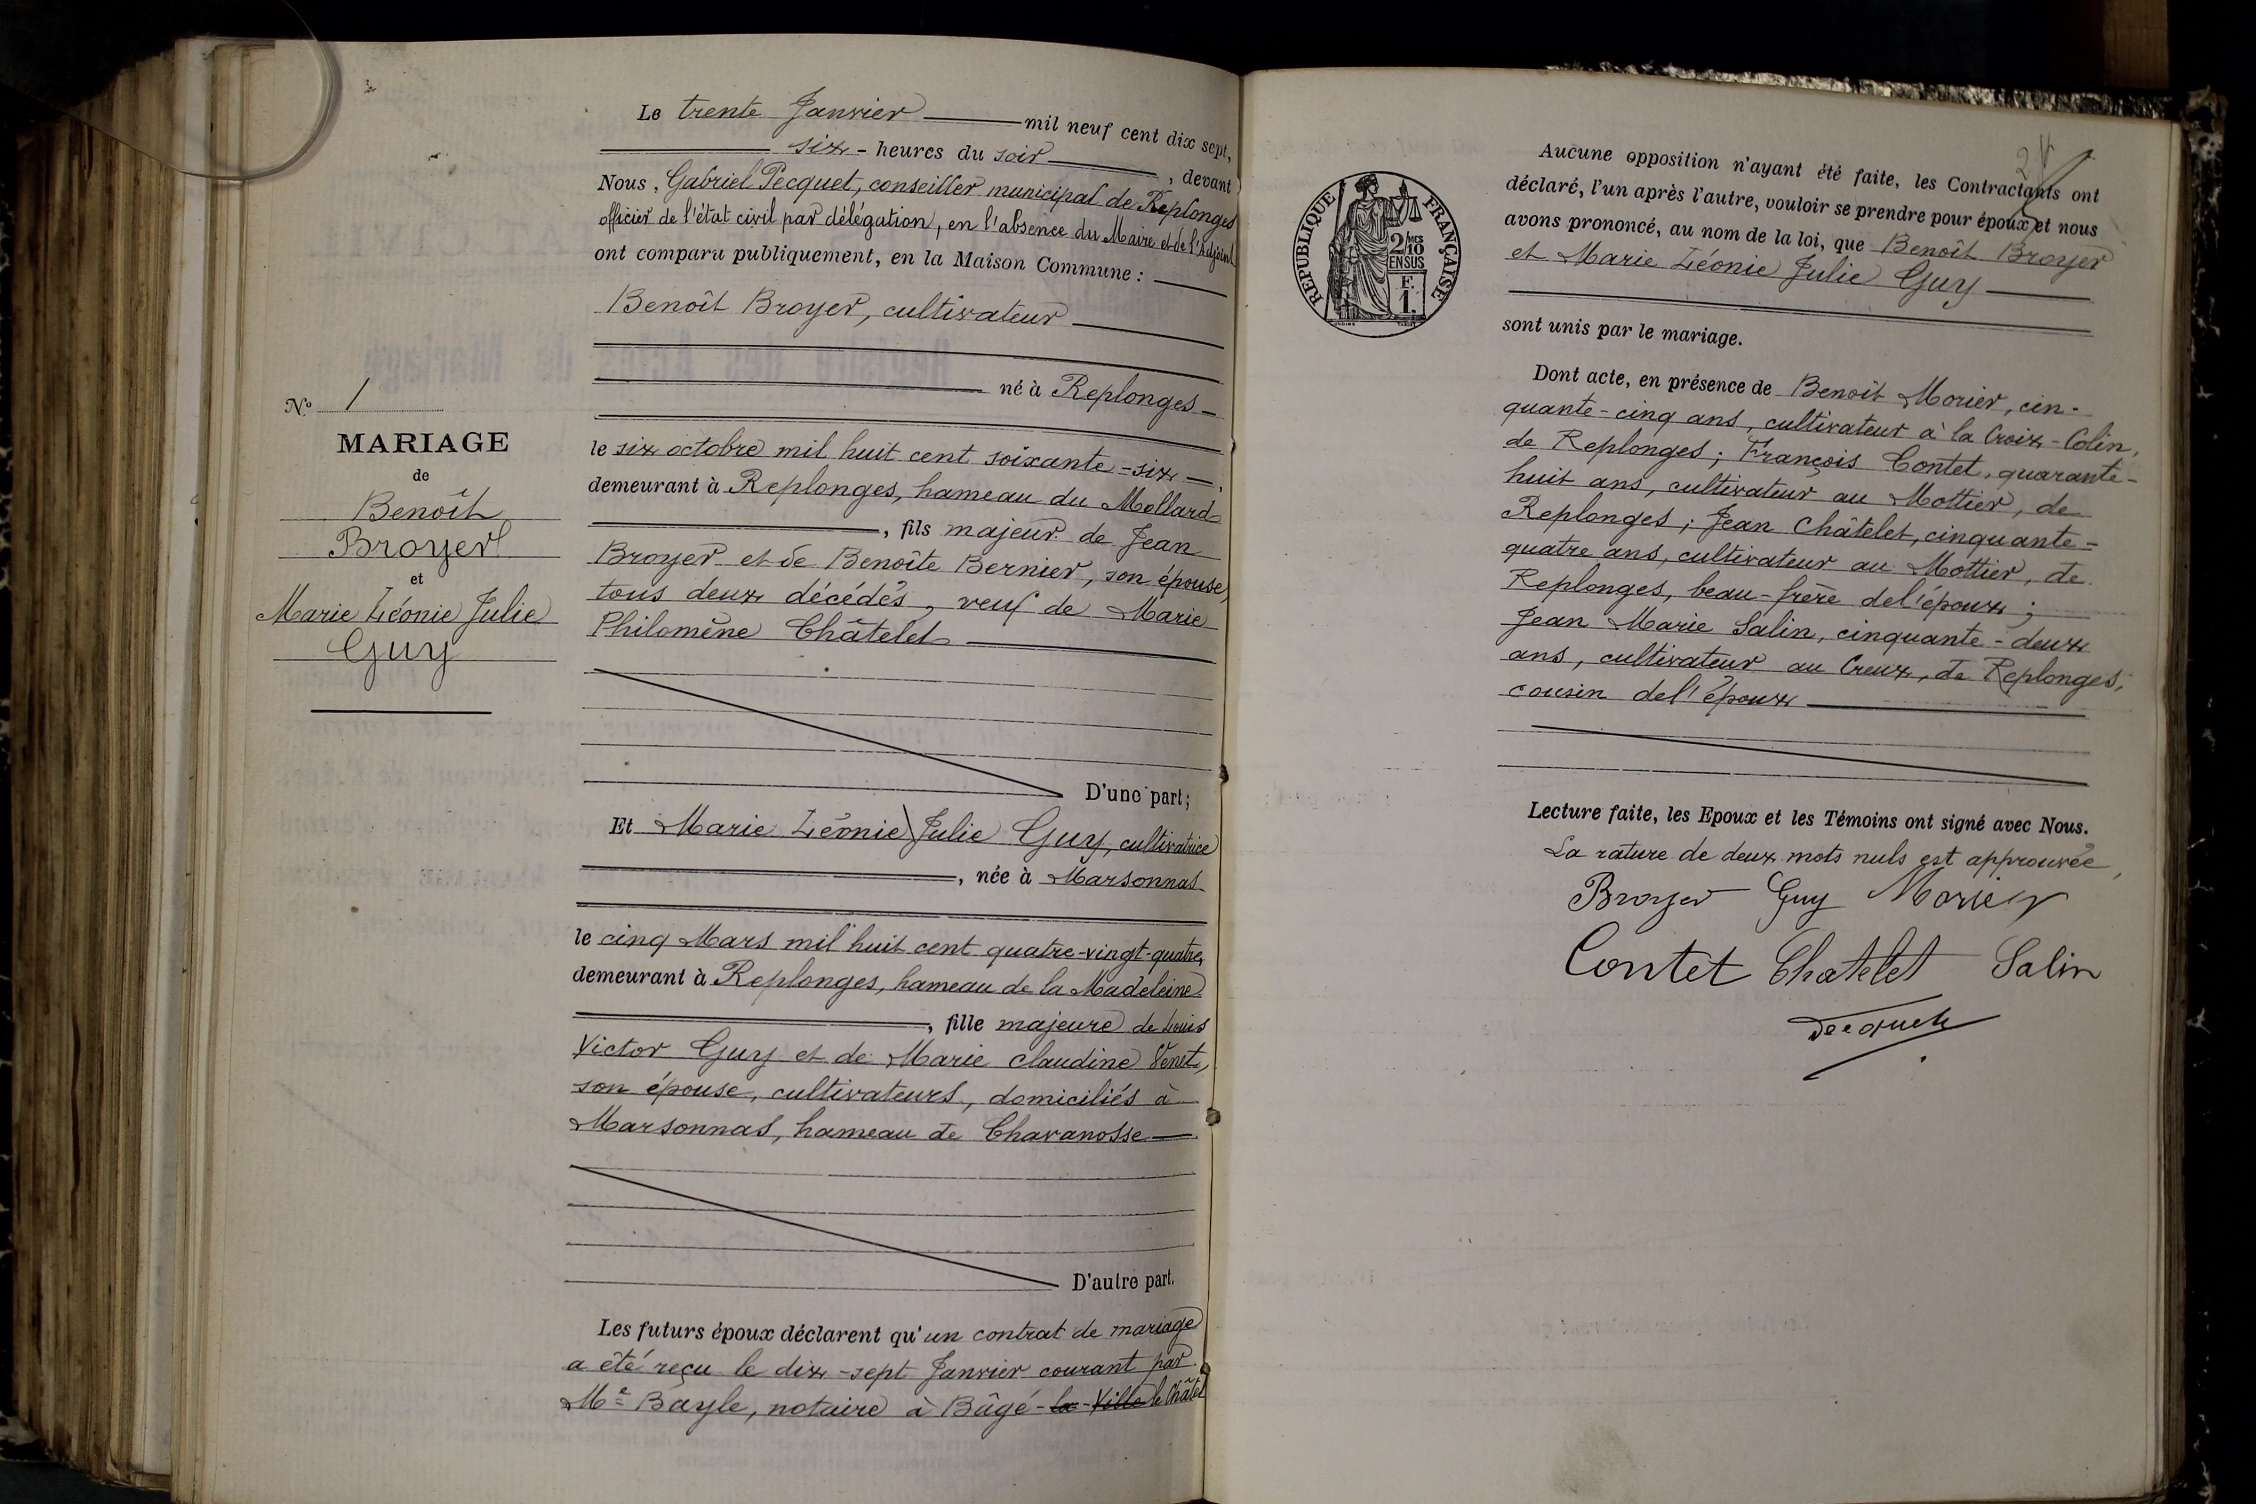 N° 1
MARIAGE
de
Benoît
Broyer
et
Marie Léonie Julie
Guy
Le trente Janvier mil neuf cent dix sept,
six - heures du soir, devant
Nous, Gabriel Pecquet, conseiller municipal de Replonges
officier de l'état civil par délégation, en l'absence du Maire et de l'Adjoint
ont comparu publiquement, en la Maison Commune :
Benoît Broyer, cultivateur
né à Replonges
le six octobre mil huit cent soixante-six,
demeurant à Replonges, hameau du Mollard
, fils majeur de Jean
Broyer et de Benoîte Bernier, son épouse,
tous deux décédés, veuf de Marie
Philomène Châtelet
D'une part;
Et Marie Léonie Julie Guy, cultivatrice
, née à Marsonnas
le cinq Mars mil huit cent quatre-vingt-quatre,
demeurant à Replonges, hameau de la Madeleine
, fille majeure de Louis
Victor Guy et de Marie Claudine Venet,
son épouse, cultivateurs, domiciliés à
Marsonnas, hameau de Chavanosse
D'autre part.
Les futurs époux déclarent qu'un contrat de mariage
a été reçu le dix-sept Janvier courant par
Me Bayle, notaire à Bâgé-la-Ville le Châtel
RÉPUBLIQUE FRANÇAISE
2/10 MES
EN SUS
F.
1.
Aucune opposition n'ayant été faite, les Contractants ont
déclaré, l'un après l'autre, vouloir se prendre pour époux et nous
avons prononcé, au nom de la loi, que Benoît Broyer
et Marie Léonie Julie Guy
sont unis par le mariage.
Dont acte, en présence de Benoît Morier, cin-
quante-cinq ans, cultivateur à la Croix-Colin,
de Replonges; François Contet, quarante-
huit ans, cultivateur au Mottier, de
Replonges; Jean Châtelet, cinquante-
quatre ans, cultivateur au Mottier, de
Replonges, beau-frère de l'époux;
Jean Marie Salin, cinquante-deux
ans, cultivateur au Creux, de Replonges,
cousin de l'époux
Lecture faite, les Epoux et les Témoins ont signé avec Nous.
La rature de deux mots nuls est approuvée,
Broyer Guy Morier
Contet Chatelet Salin
Pecquet